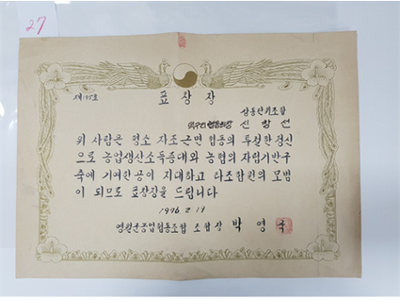 27
표상장
삼동단위조합
신랑선
위 사람은 평소 자조근면 협동의 투철한 정신
으로 농업생산소득증대와 농협의 자립기반구
축에 기여한 공이 지대하고 타조합원의 모범
이 되므로 표창장을 드립니다
1976 2 19
영광군농업협동조합 조합장 박영국